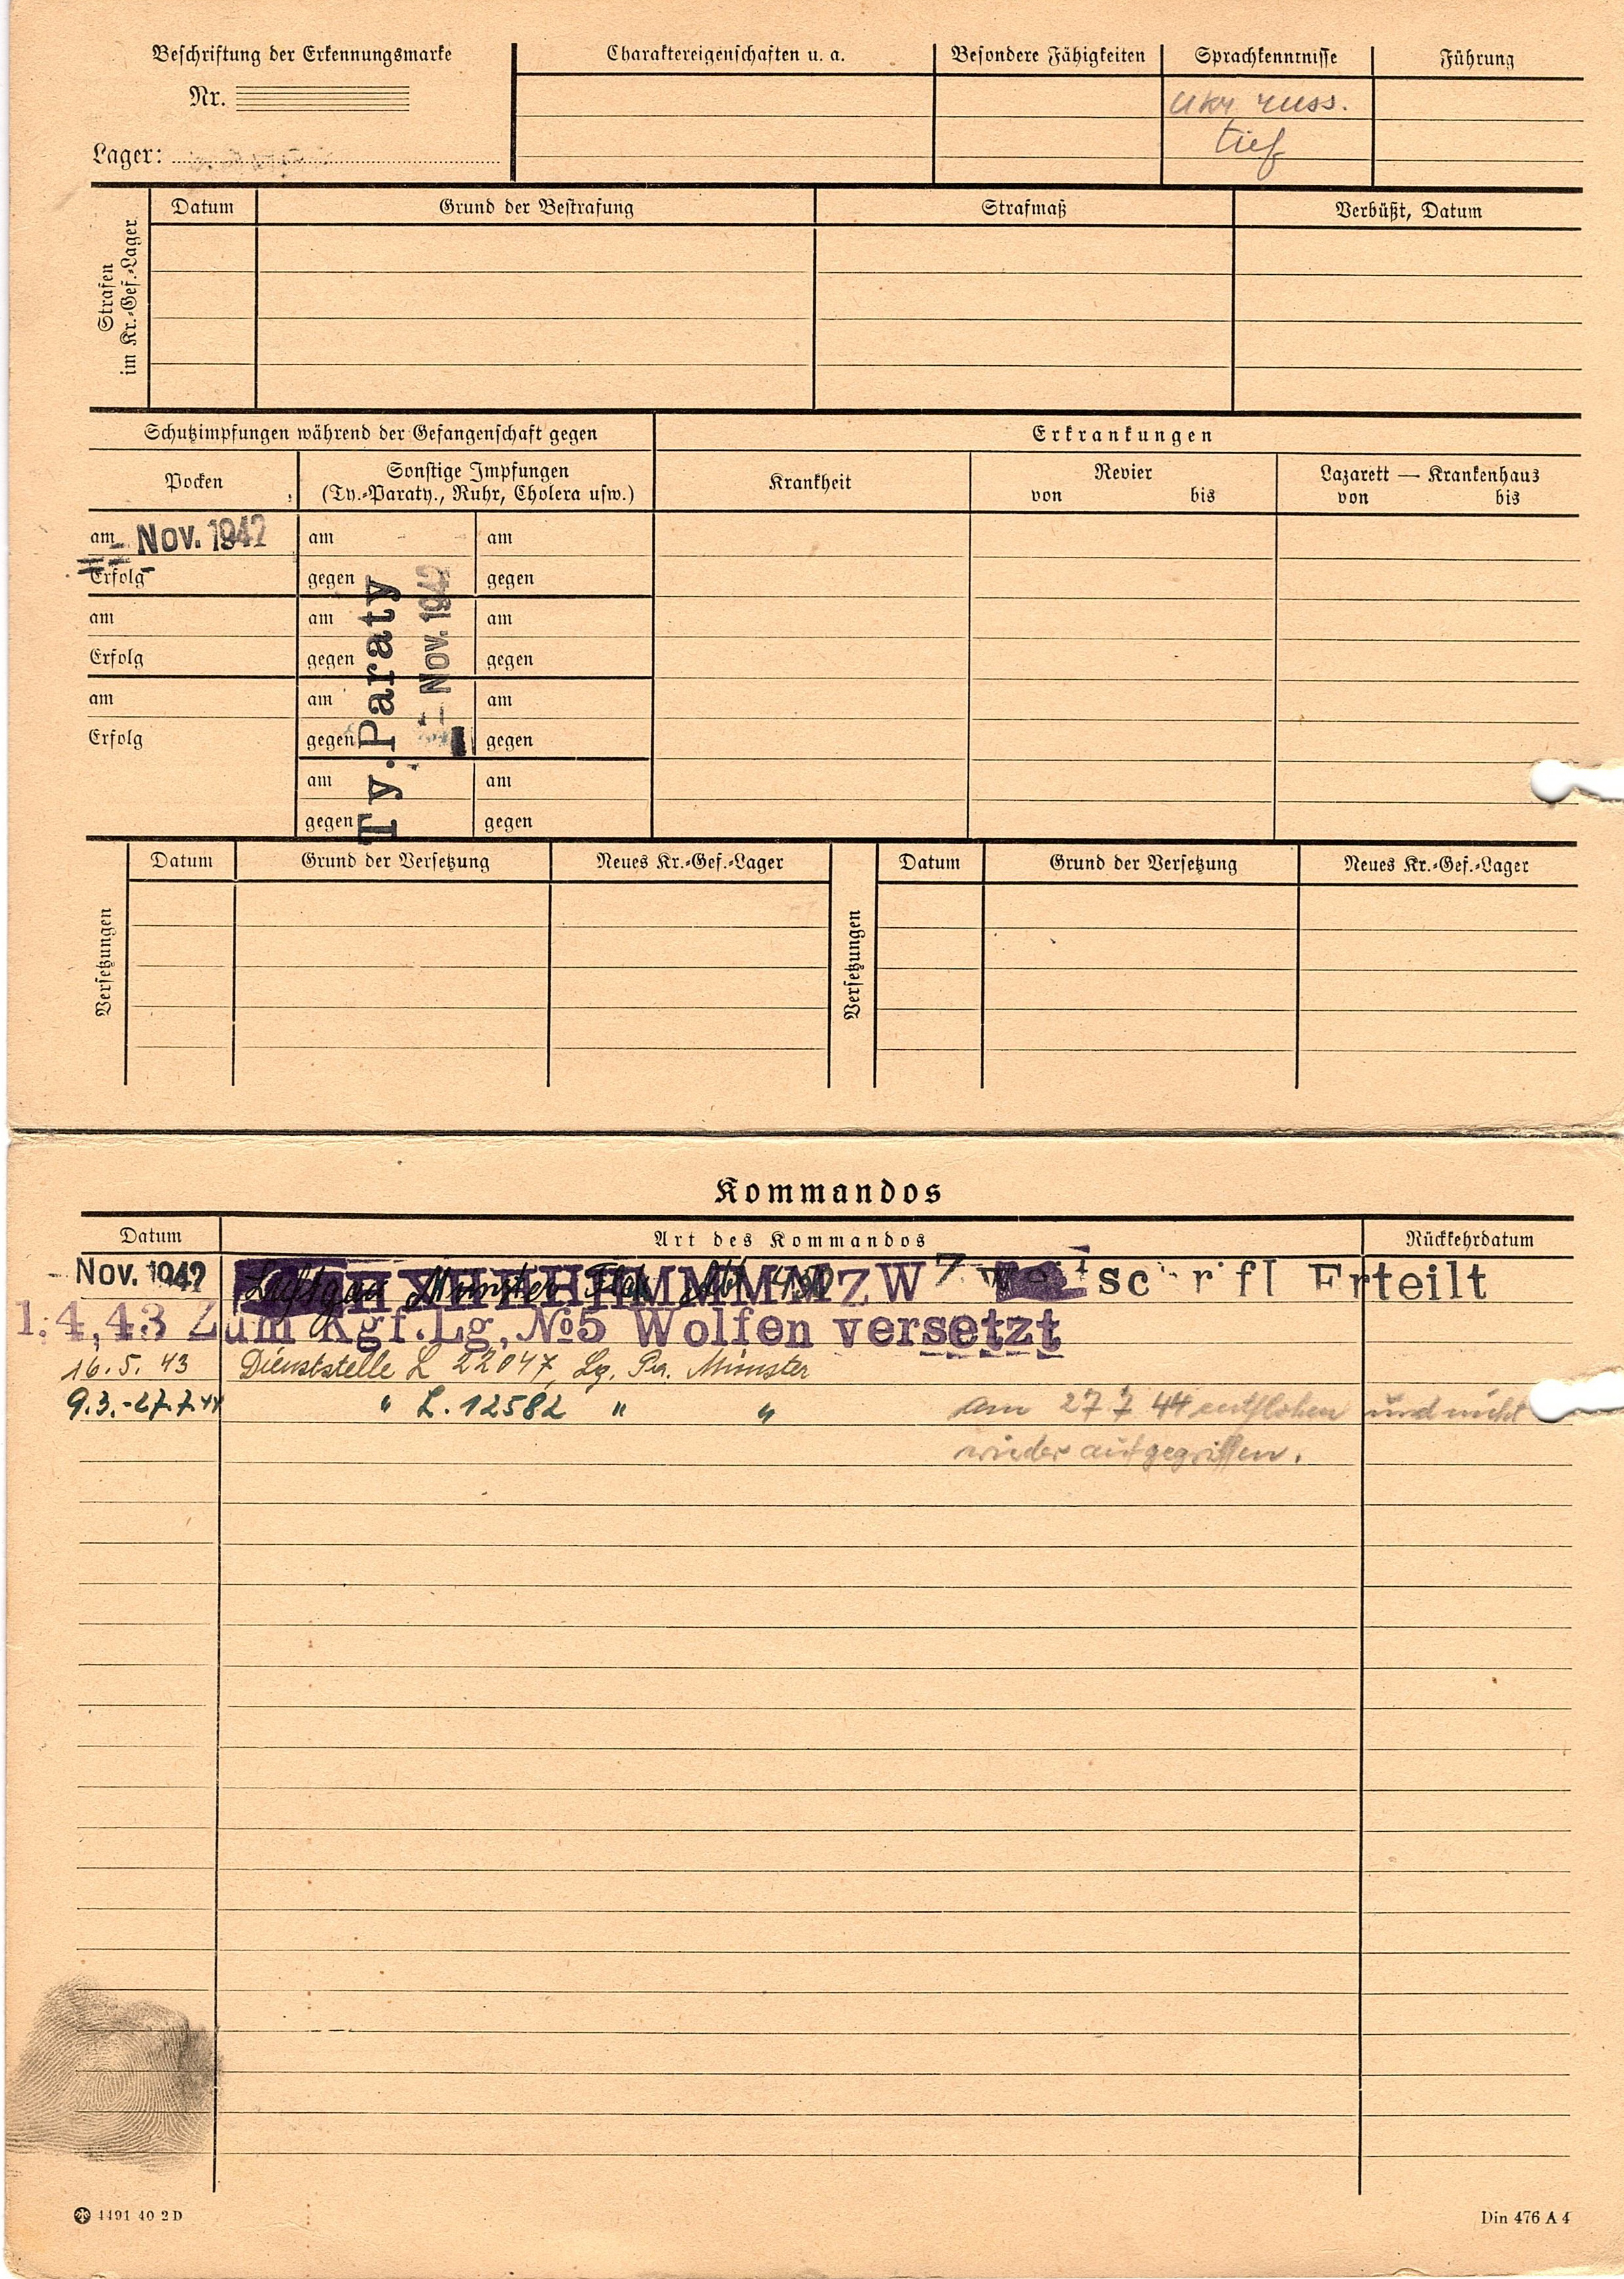 Beschriftung der Erkennungsmarke
Nr.
Lager:
Charaktereigenschaften u. a.
Besondere Fähigkeiten
Sprachkenntnisse
Führung
ukr russ.
tief
Strafen
im Kr.-Gef.-Lager
Datum
Grund der Bestrafung
Strafmaß
Verbüßt, Datum
Schutzimpfungen während der Gefangenschaft gegen
Erkrankungen
Pocken
Sonstige Impfungen
(Ty.-Paraty., Ruhr, Cholera usw.)
Krankheit
Revier
von bis
Lazarett — Krankenhaus
von bis
am - Nov. 1942
am
am
Erfolg
gegen
gegen
am
am
am
Erfolg
gegen
gegen
am
am
am
Erfolg
gegen
gegen
am
am
gegen
gegen
Ty.Paraty
- Nov. 1942
Versetzungen
Datum
Grund der Versetzung
Neues Kr.-Gef.-Lager
Versetzungen
Datum
Grund der Versetzung
Neues Kr.-Gef.-Lager
Kommandos
Datum
Art des Kommandos
Rückkehrdatum
- Nov. 1942 Luftgau Münster Erteilt
1.4,43 Zum Kgf.Lg,№5 Wolfen versetzt
16.5.43 Dienststelle L 22047, Lg. Pa. Münster
9.3.-27.7.44 " L. 12582 " " am 27 7 44 entflohen und nicht
wieder aufgegriffen.
4491 40 2 D
Din 476 A 4